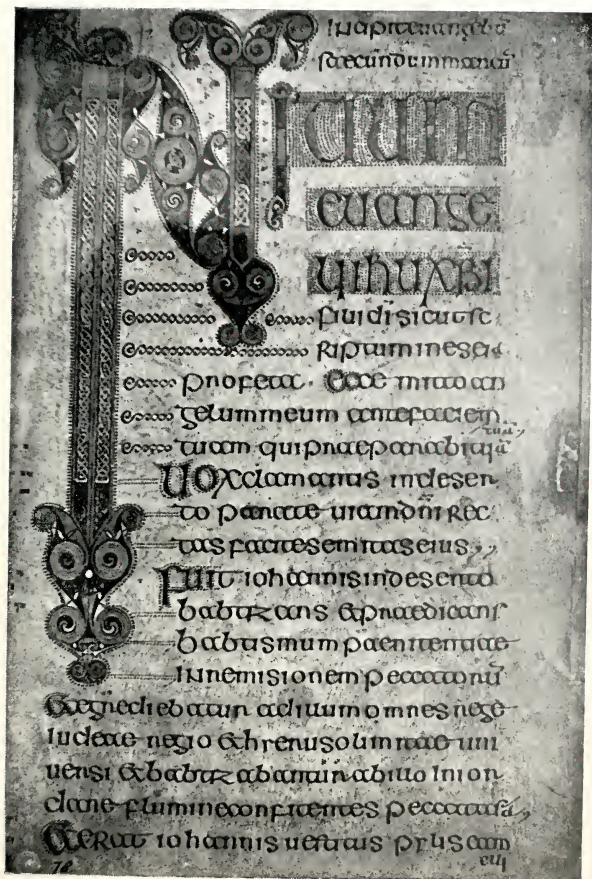 Incipit euangeliū
secundum marcū
INITIUM
euange
lii ihu xpi
fili di sicut sc
riptum in esei a
profeta · Ecce mitto an
gelum meum ante faciem
tuā,,
tuam qui praeparabit uiā
Uox clamantis in deser
to parate uiam dnī rec
tas facite semitas eius,,
Fuit iohannis in deserto
babtizans & praedicans
babtismum paenitentiae
in remisionem peccatorū
& egrediebatur ad illum omnes rege
iudeae regio & hierusolimitae uni
uersi & babtizabantur ab illo in ior
dane flumine confitentes peccata suā,,
& erat iohannis uestitus pilus cam
eli